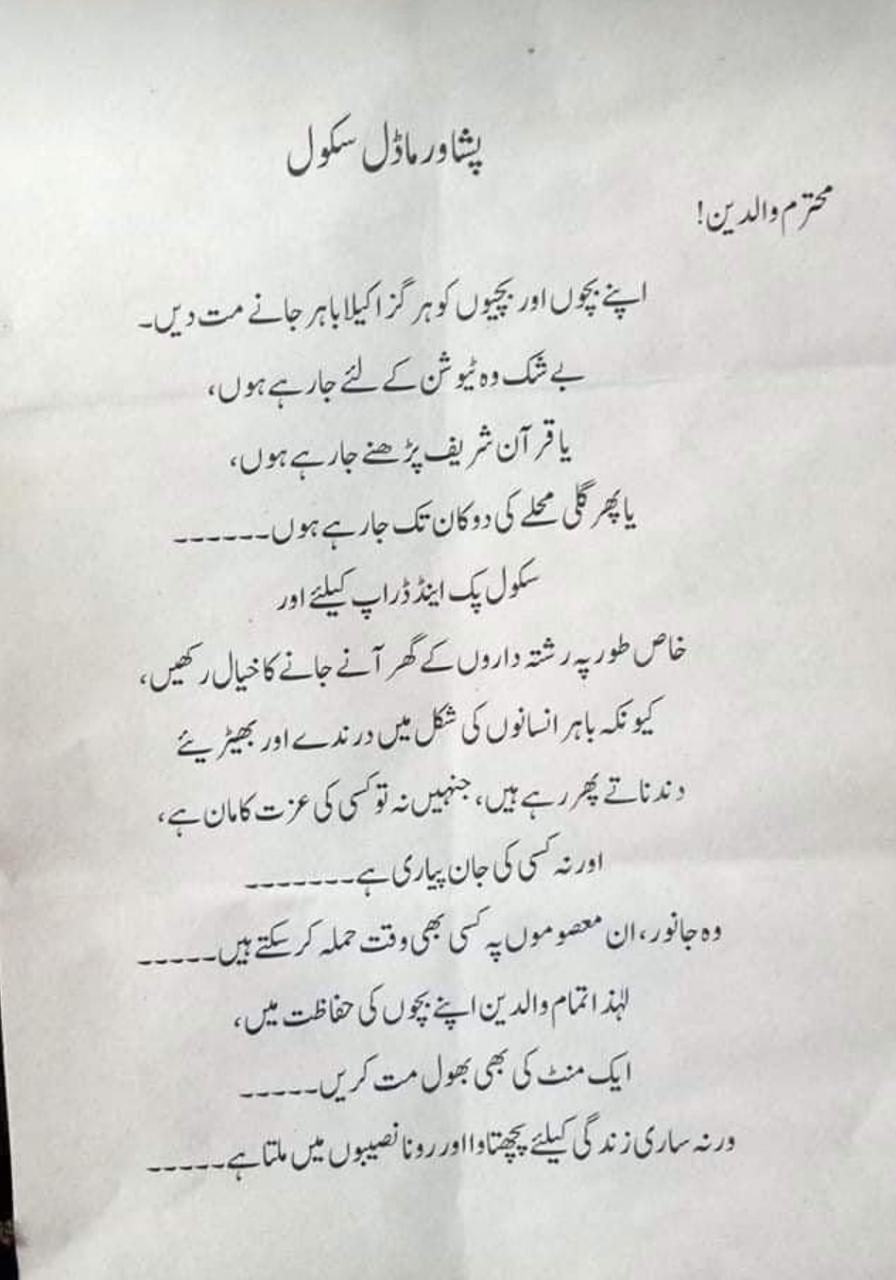 پشاور ماڈل سکول
محترم والدین!
اپنے بچوں اور بچیوں کو ہر گز اکیلا باہر جانے مت دیں۔
بے شک وہ ٹیوشن کے لئے جا رہے ہوں،
یا قرآن شریف پڑھنے جا رہے ہوں،
یا پھر گلی محلے کی دوکان تک جا رہے ہوں۔۔۔۔۔۔
سکول پک اینڈ ڈراپ کیلئے اور
خاص طور پہ رشتہ داروں کے گھر آنے جانے کا خیال رکھیں،
کیونکہ باہر انسانوں کی شکل میں درندے اور بھیڑیئے
دندناتے پھر رہے ہیں، جنہیں نہ تو کسی کی عزت کا مان ہے،
اور نہ کسی کی جان پیاری ہے۔۔۔۔۔۔۔
وہ جانور، ان معصوموں پہ کسی بھی وقت حملہ کر سکتے ہیں۔۔۔۔۔
لہٰذا تمام والدین اپنے بچوں کی حفاظت میں،
ایک منٹ کی بھی بھول مت کریں۔۔۔۔۔
ورنہ ساری زندگی کیلئے پچھتاوا اور رونا نصیبوں میں ملتا ہے۔۔۔۔۔